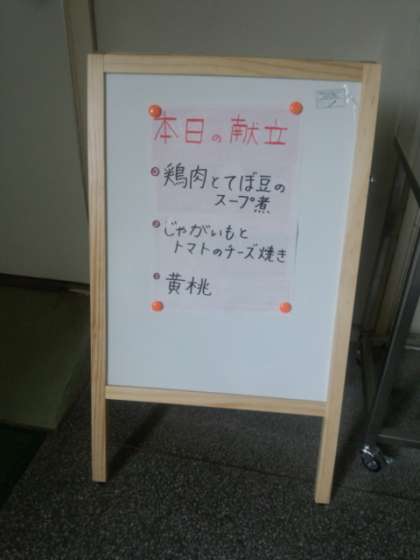 本日の献立
鶏肉とてぼ豆の
スープ煮
じゃがいもと
トマトのチーズ焼き
黄桃